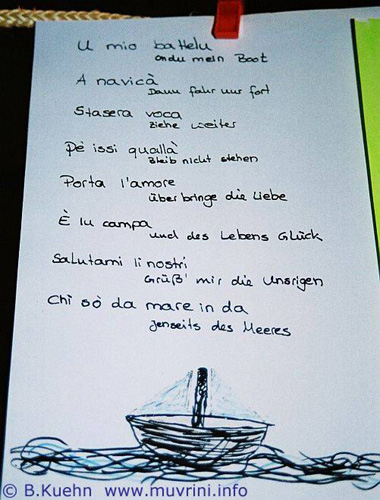 U mio battelu
oh du mein Boot
A navicà
Dann fahr nur fort
Stasera voca
Ziehe weiter
Pè issi quallà
Bleib nicht stehen
Porta l'amore
überbringe die Liebe
È lu campa
und des Lebens Glück
Salutami li nostri
Grüß' mir die Unsrigen
Chi sò da mare in da
Jenseits des Meeres
© B.Kuehn www.muvrini.info